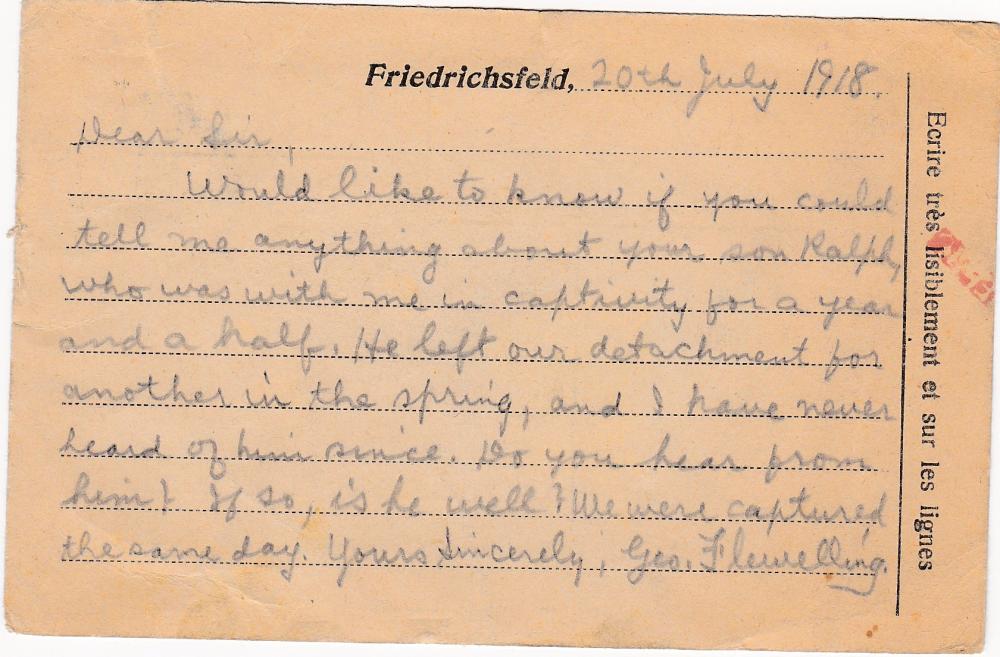 Friedrichsfeld, 20th July 1918.
Dear Sir,
Would like to know if you could
tell me anything about your son Ralph,
who was with me in captivity for a year
and a half. He left our detachment for
another in the spring, and I have never
heard of him since. Do you hear from
him? If so, is he well? We were captured
the same day. Yours Sincerely, Geo. Flewelling.
Ecrire très lisiblement et sur les lignes